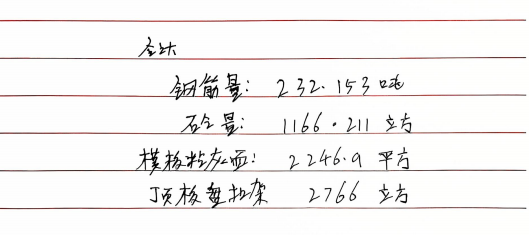 钢筋量: 232.153 吨
砼量: 1166.211 立方
模板粘灰面: 2246.9 平方
顶板盘扣架 2766 立方